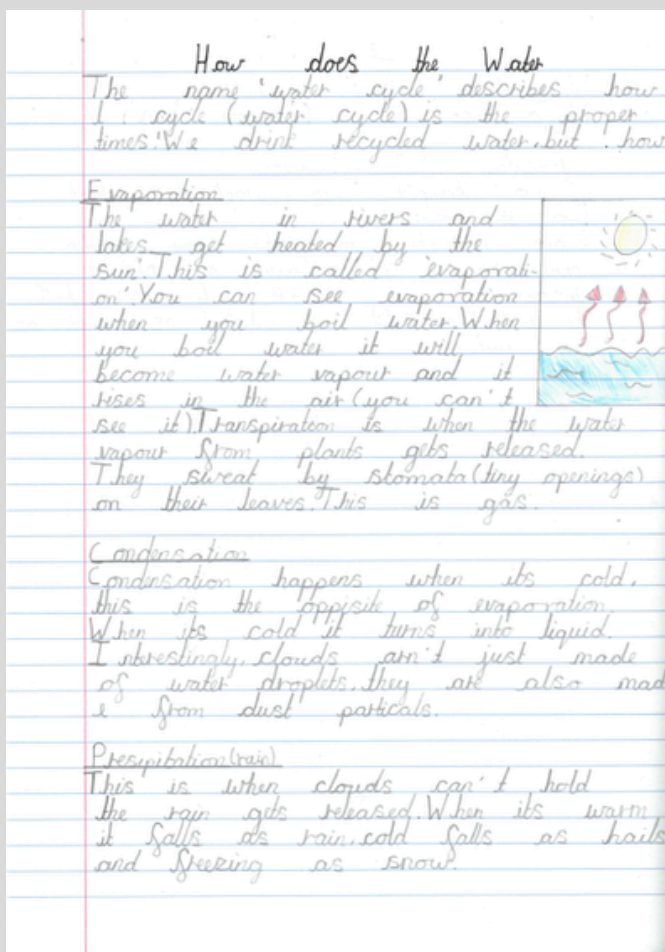 How does the Water
The name 'water cycle' describes how
I cycle (water cycle) is the proper
times. We drink recycled water, but how
Evaporation
The water in rivers and
lakes get heated by the
sun. This is called 'evaporati-
on'. You can see evaporation
when you boil water. When
you boil water it will
become water vapour and it
rises in the air (you can't
see it). Transpiration is when the water
vapour from plants gets released.
They sweat by stomata (tiny openings)
on their leaves. This is gas.
Condensation
Condensation happens when its cold,
this is the oppisite of evaporation.
When its cold it turns into liquid.
Interestingly, clouds arn't just made
of water droplets, they are also mad
e from dust particals.
Presipitation (rain)
This is when clouds can't hold
the rain gets released. When its warm
it falls as rain, cold falls as hails
and freezing as snow.